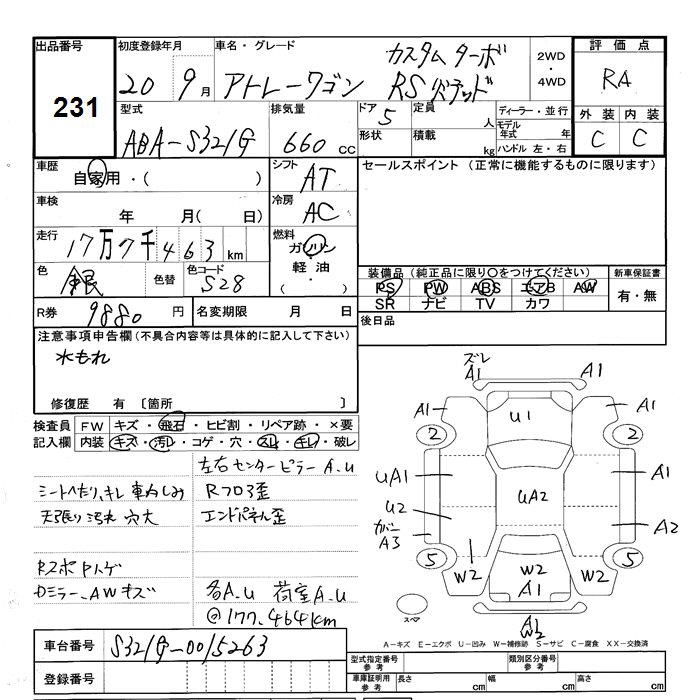 出品番号 初度登録年月 車名・グレード 評価点
231
20 9月 アトレーワゴン カスタムターボ
RSリミテッド 2WD・4WD RA
型式 排気量 ドア 5 定員 人 ディーラー・並行 外装 内装
ABA-S321G 660cc 形状 積載 kg モデル年式 年 ハンドル 左・右 C C
車歴 自家用・( ) シフト AT セールスポイント (正常に機能するものに限ります)
車検 年 月( 日) 冷房 AC
走行 17万7千463km 燃料 ガソリン・軽油・
色 銀 色替 色コード S28 装備品(純正品に限り○をつけてください) 新車保証書
PS PW ABS エアB AW 有・無
SR ナビ TV カワ
R券 9880円 名変期限 月 日 後日品
注意事項申告欄(不具合内容等は具体的に記入して下さい)
水もれ
修復歴 有 [箇所 ]
検査員記入欄 FW キズ・飛石・ヒビ割・リペア跡・×要
内装 キズ・汚レ・コゲ・穴・スレ・キレ・破レ
左右センターピラーA.U
シートへたり、キレ 車内しみ Rフロア歪
天張り汚れ 穴大 エンドパネル歪
Rスポ
Dミラー、AWキズ 各A.U 荷室A.U
@177,464km
ズレ
A1 A1
A1 U1 A1
2 2
UA1 A1
U2 UA2 A2
カバー
A3
5 5
W2 W2 W2
A1
スペア
W2
A-キズ E-エクボ U-凹み W-補修跡 S-サビ C-腐食 XX-交換済
車台番号 S321G-0015263
登録番号
型式指定番号 参考 類別区分番号 参考
車庫証明用 参考 長さ cm 幅 cm 高さ cm